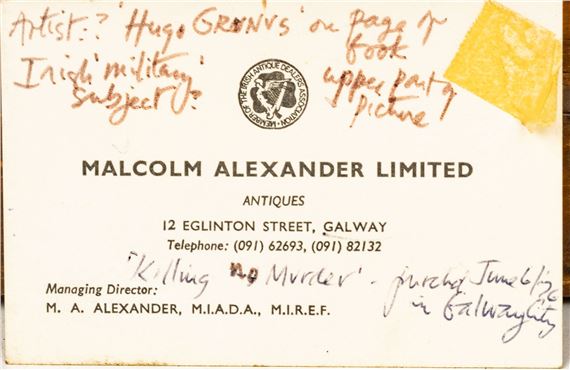 Artist? 'Hugo GRONVS' on page of
book
Irish 'military'
subject?
upper part of
picture
MEMBER OF THE IRISH ANTIQUE DEALERS ASSOCIATION
MALCOLM ALEXANDER LIMITED
ANTIQUES
12 EGLINTON STREET, GALWAY
Telephone: (091) 62693, (091) 82132
'Killing no Murder' -
June
in Galway City
Managing Director:
M. A. ALEXANDER, M.I.A.D.A., M.I.R.E.F.